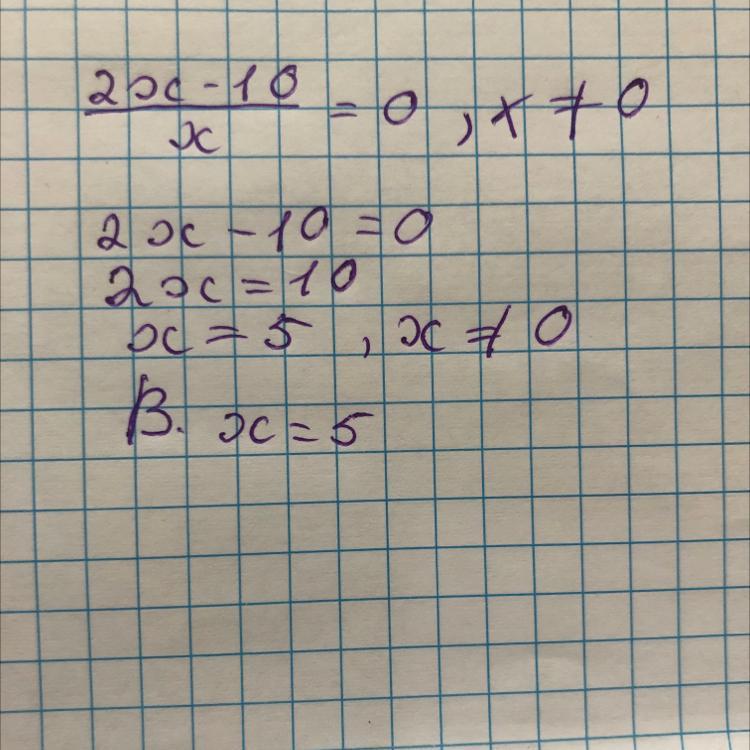 2x - 10 / x = 0 , x ≠ 0
2x - 10 = 0
2x = 10
x = 5 , x ≠ 0
В. x = 5